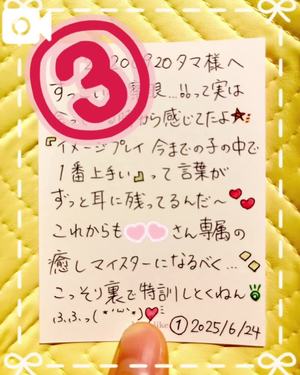 ③
20 タマ様へ
良…!!って実は
から感じてたよ
『イメージプレイ 今までの子の中で
1番上手い』って言葉が
ずっと耳に残ってるんだ〜
これからも さん専属の
癒しマイスターになるべく…
こっそり裏で特訓しとくねん
ふふっ(*'ω'*) ① 2025/6/24
like